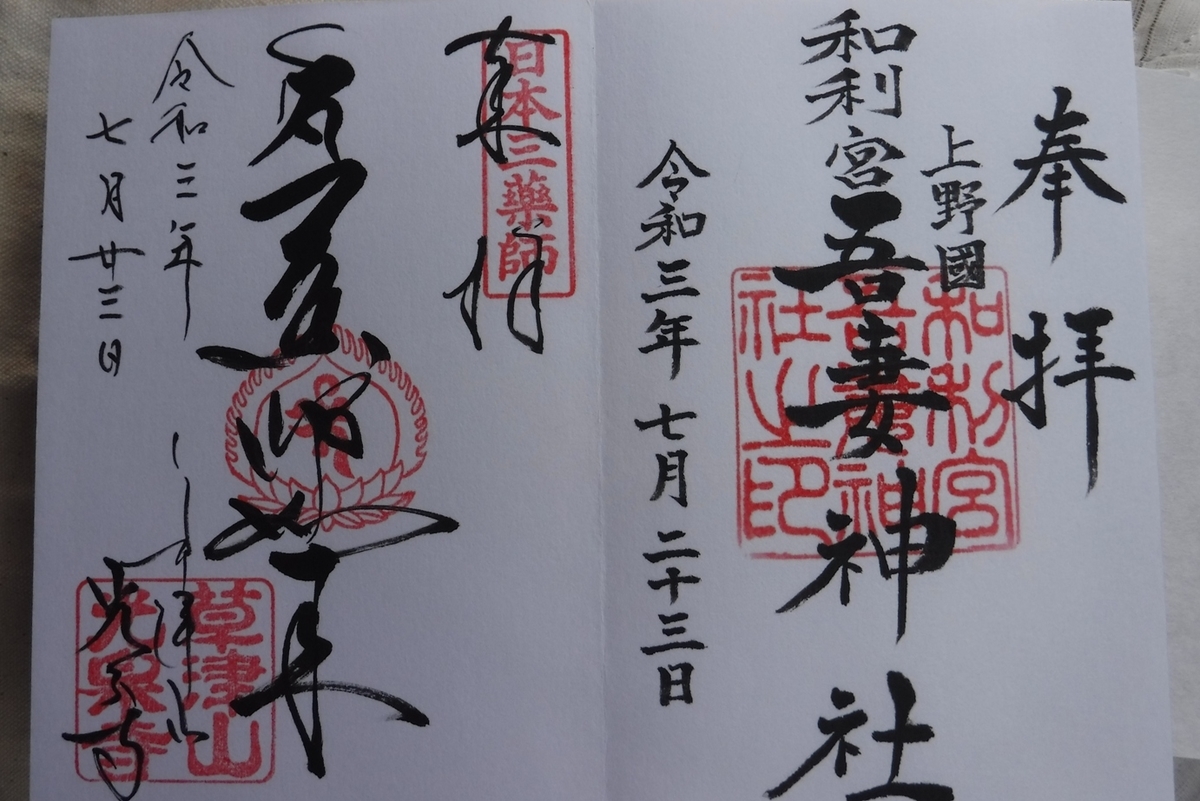 奉拝
上野國
和利宮吾妻神社
和利宮
吾妻神
社之印
令和三年七月二十三日
奉拝
日本三薬師
薬師如来
令和三年
七月廿三日
草津山
光泉寺
草津山
光泉寺